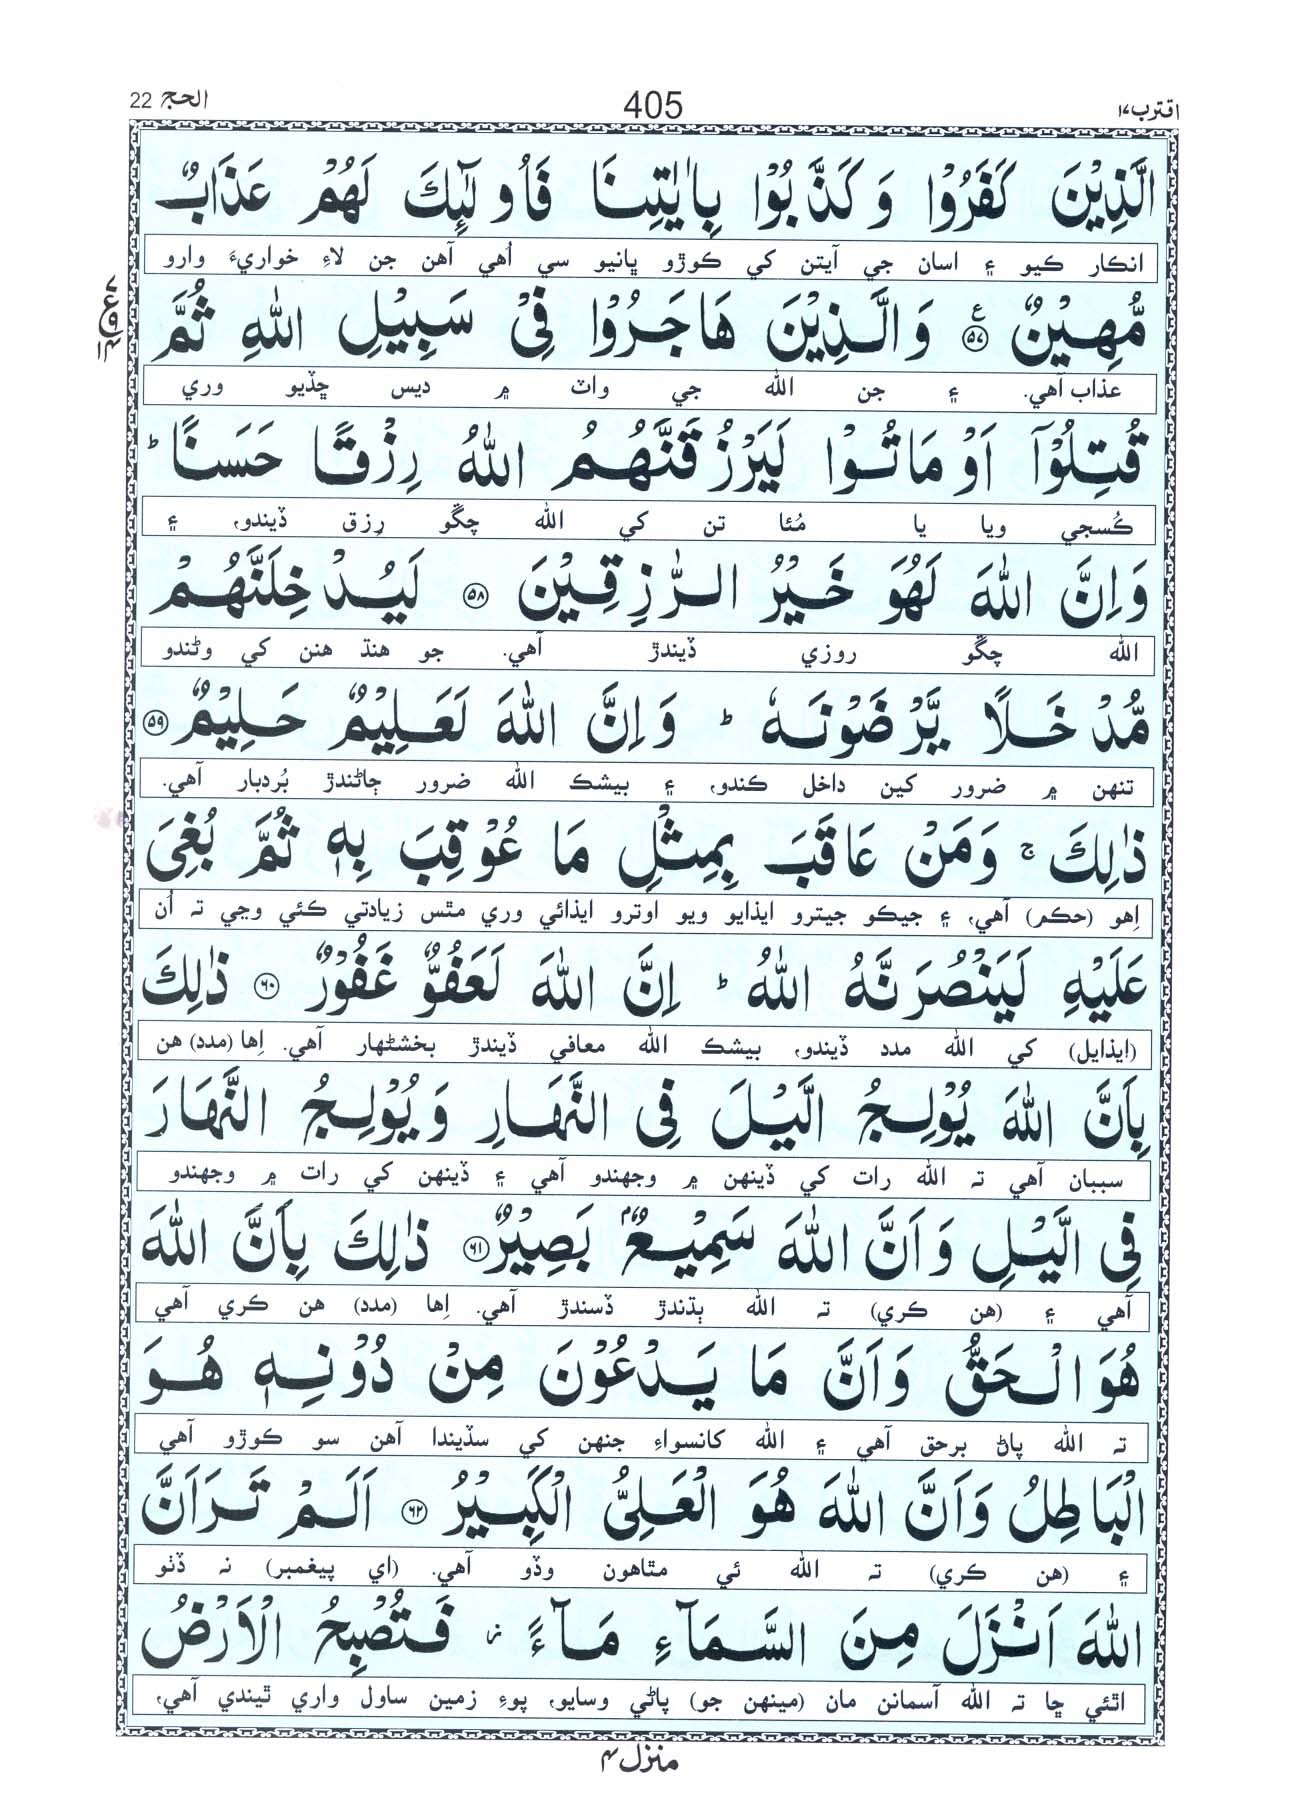 اقترب ١٧
405
الحج 22
الَّذِيْنَ كَفَرُوْا وَ كَذَّبُوْا بِاٰيٰتِنَا فَاُولٰٓئِكَ لَهُمْ عَذَابٌ
انڪار ڪيو ۽ اسان جي آيتن کي ڪوڙو ڀانيو سي اُهي آهن جن لاءِ خواريءَ وارو
مُّهِيْنٌ ﴿٥٧﴾ وَالَّذِيْنَ هَاجَرُوْا فِيْ سَبِيْلِ اللهِ ثُمَّ
عذاب آهي. ۽ جن الله جي واٽ ۾ ديس ڇڏيو وري
قُتِلُوْٓا اَوْ مَاتُوْا لَيَرْزُقَنَّهُمُ اللهُ رِزْقًا حَسَنًا ؕ
ڪُسجي ويا يا مُئا تن کي الله چڱو رِزق ڏيندو، ۽
وَاِنَّ اللهَ لَهُوَ خَيْرُ الرّٰزِقِيْنَ ﴿٥٨﴾ لَيُدْخِلَنَّهُمْ
الله چڱو روزي ڏيندڙ آهي. جو هنڌ هنن کي وڻندو
مُّدْخَلًا يَّرْضَوْنَهٗ ؕ وَاِنَّ اللهَ لَعَلِيْمٌ حَلِيْمٌ ﴿٥٩﴾
تنهن ۾ ضرور کين داخل ڪندو، ۽ بيشڪ الله ضرور ڄاڻندڙ بُردبار آهي.
ذٰلِكَ ۚ وَمَنْ عَاقَبَ بِمِثْلِ مَا عُوْقِبَ بِهٖ ثُمَّ بُغِيَ
اِهو (حڪم) آهي، ۽ جيڪو جيترو ايذايو ويو اوترو ايذائي وري مٿس زيادتي ڪئي وڃي ته اُن
عَلَيْهِ لَيَنْصُرَنَّهُ اللهُ ؕ اِنَّ اللهَ لَعَفُوٌّ غَفُوْرٌ ﴿٦٠﴾ ذٰلِكَ
(ايذايل) کي الله مدد ڏيندو، بيشڪ الله معافي ڏيندڙ بخشڻهار آهي. اِها (مدد) هن
بِاَنَّ اللهَ يُوْلِجُ الَّيْلَ فِي النَّهَارِ وَيُوْلِجُ النَّهَارَ
سببان آهي ته الله رات کي ڏينهن ۾ وجهندو آهي ۽ ڏينهن کي رات ۾ وجهندو
فِي الَّيْلِ وَاَنَّ اللهَ سَمِيْعٌۢ بَصِيْرٌ ﴿٦١﴾ ذٰلِكَ بِاَنَّ اللهَ
آهي ۽ (هن ڪري) ته الله ٻڌندڙ ڏسندڙ آهي. اِها (مدد) هن ڪري آهي
هُوَ الْحَقُّ وَاَنَّ مَا يَدْعُوْنَ مِنْ دُوْنِهٖ هُوَ
ته الله پاڻ برحق آهي ۽ الله کانسواءِ جنهن کي سڏيندا آهن سو ڪوڙو آهي
الْبَاطِلُ وَاَنَّ اللهَ هُوَ الْعَلِيُّ الْكَبِيْرُ ﴿٦٢﴾ اَلَمْ تَرَ اَنَّ
۽ (هن ڪري) ته الله ئي مٿاهون وڏو آهي. (اي پيغمبر) نه ڏٺو
اللهَ اَنْزَلَ مِنَ السَّمَآءِ مَآءً ز فَتُصْبِحُ الْاَرْضُ
اٿئي ڇا ته الله آسمانن مان (مينهن جو) پاڻي وسايو، پوءِ زمين ساول واري ٿيندي آهي،
منزل ٤